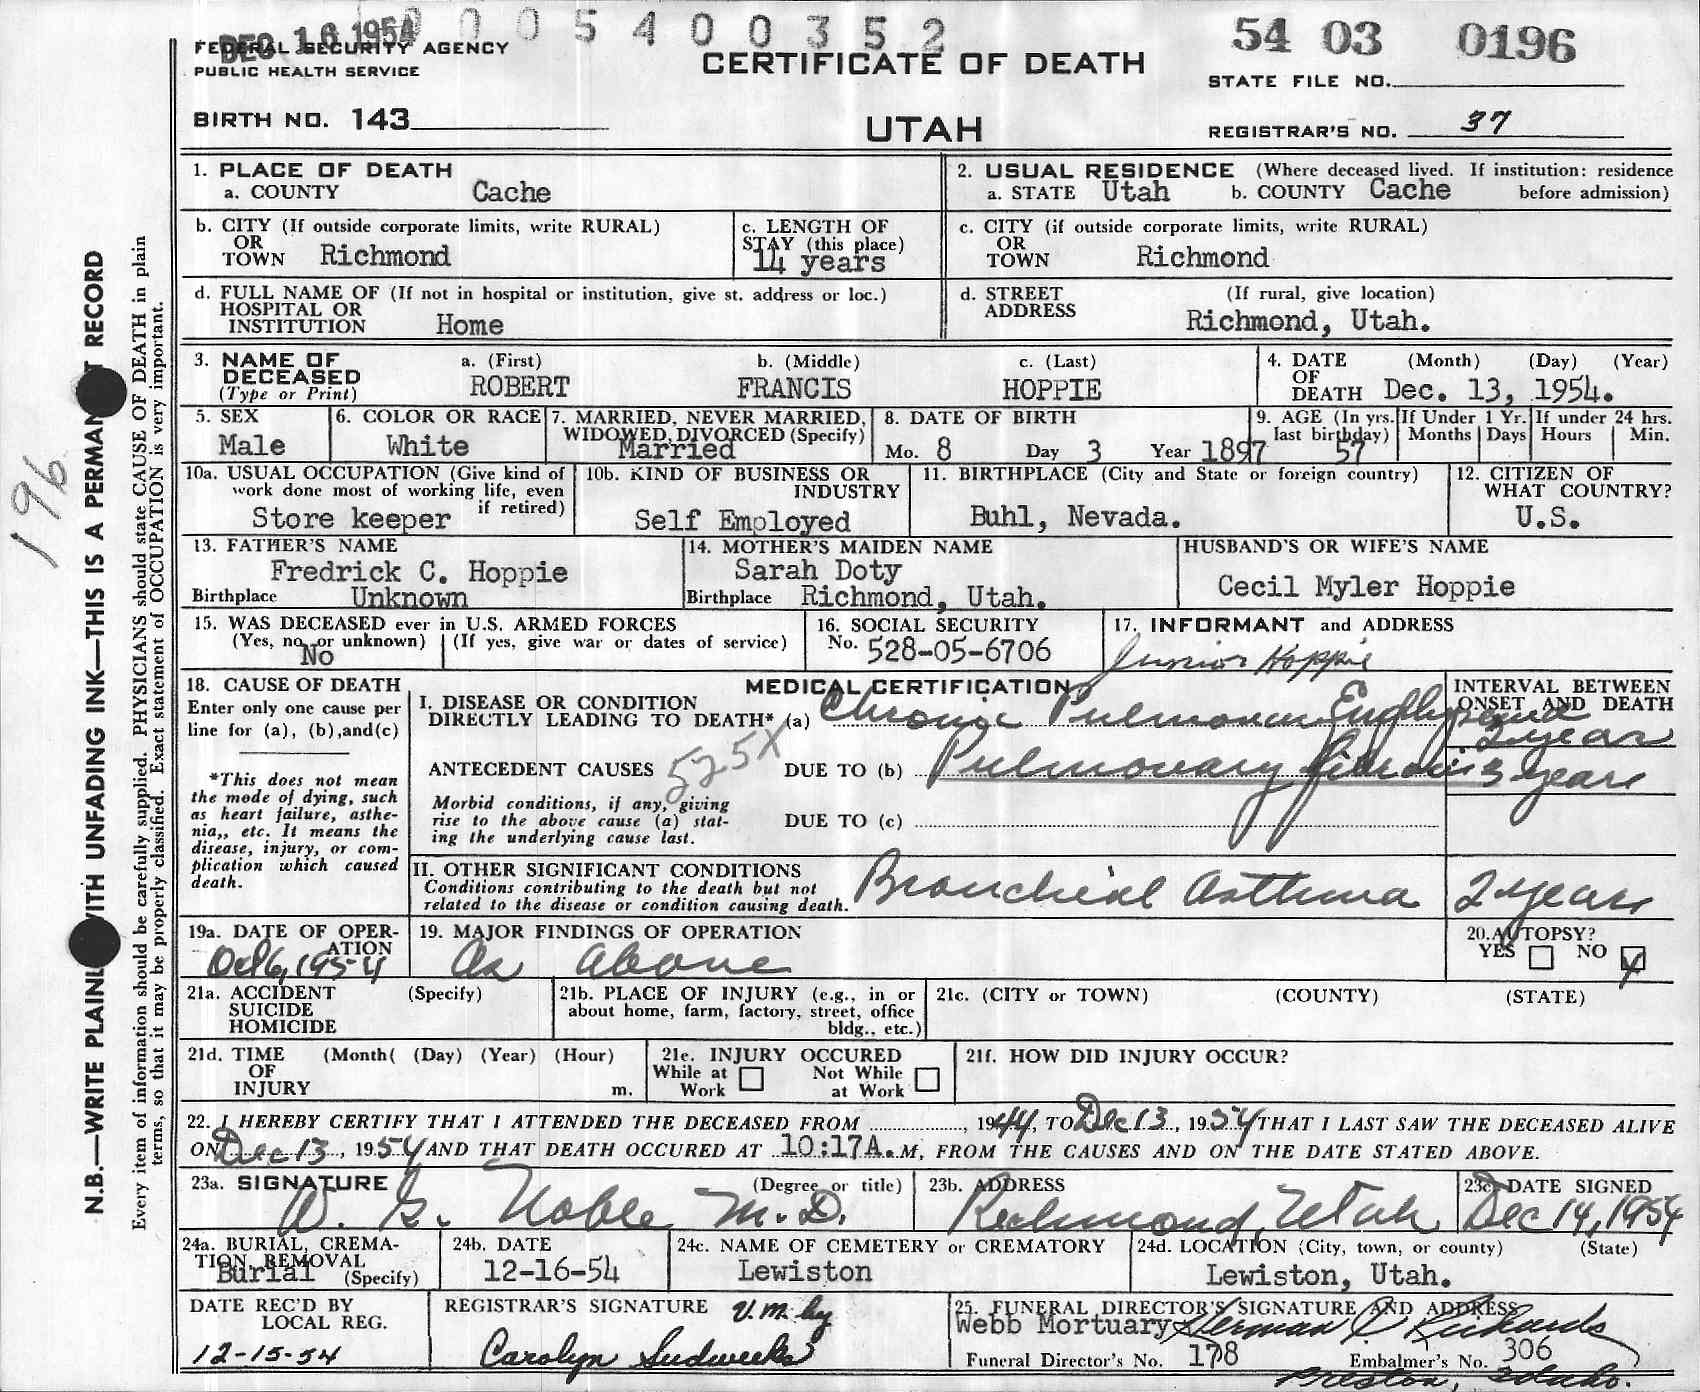 DEC 16 1954
0005400352
54 03 0196
FEDERAL SECURITY AGENCY
PUBLIC HEALTH SERVICE
CERTIFICATE OF DEATH
STATE FILE NO.
BIRTH NO. 143
UTAH
REGISTRAR'S NO. 37
N.B.—WRITE PLAINL WITH UNFADING INK—THIS IS A PERMAN T RECORD
Every item of information should be carefully supplied. PHYSICIANS should state CAUSE OF DEATH in plain
terms, so that it may be properly classified. Exact statement of OCCUPATION is very important.
196
1. PLACE OF DEATH
a. COUNTY Cache
2. USUAL RESIDENCE (Where deceased lived. If institution: residence
a. STATE Utah b. COUNTY Cache before admission)
b. CITY (If outside corporate limits, write RURAL)
OR
TOWN Richmond
c. LENGTH OF
STAY (this place)
14 years
c. CITY (if outside corporate limits, write RURAL)
OR
TOWN Richmond
d. FULL NAME OF (If not in hospital or institution, give st. address or loc.)
HOSPITAL OR
INSTITUTION Home
d. STREET (If rural, give location)
ADDRESS
Richmond, Utah.
3. NAME OF a. (First) b. (Middle) c. (Last)
DECEASED ROBERT FRANCIS HOPPIE
(Type or Print)
4. DATE (Month) (Day) (Year)
OF
DEATH Dec. 13, 1954.
5. SEX
Male
6. COLOR OR RACE
White
7. MARRIED, NEVER MARRIED,
WIDOWED, DIVORCED (Specify)
Married
8. DATE OF BIRTH
Mo. 8 Day 3 Year 1897
9. AGE (In yrs.
last birthday)
57
If Under 1 Yr.
Months Days
If under 24 hrs.
Hours Min.
10a. USUAL OCCUPATION (Give kind of
work done most of working life, even
if retired)
Store keeper
10b. KIND OF BUSINESS OR
INDUSTRY
Self Employed
11. BIRTHPLACE (City and State or foreign country)
Buhl, Nevada.
12. CITIZEN OF
WHAT COUNTRY?
U.S.
13. FATHER'S NAME
Fredrick C. Hoppie
Birthplace Unknown
14. MOTHER'S MAIDEN NAME
Sarah Doty
Birthplace Richmond, Utah.
HUSBAND'S OR WIFE'S NAME
Cecil Myler Hoppie
15. WAS DECEASED ever in U.S. ARMED FORCES
(Yes, no, or unknown) (If yes, give war or dates of service)
No
16. SOCIAL SECURITY
No. 528-05-6706
17. INFORMANT and ADDRESS
Junior Hoppie
18. CAUSE OF DEATH
Enter only one cause per
line for (a), (b),and(c)
*This does not mean
the mode of dying, such
as heart failure, asthe-
nia,, etc. It means the
disease, injury, or com-
plication which caused
death.
MEDICAL CERTIFICATION
I. DISEASE OR CONDITION
DIRECTLY LEADING TO DEATH* (a) Chronic Pulmonary Emphysema
INTERVAL BETWEEN
ONSET AND DEATH
2 year
ANTECEDENT CAUSES 525X DUE TO (b) Pulmonary fibrosis 3 years
Morbid conditions, if any, giving
rise to the above cause (a) stat-
ing the underlying cause last.
DUE TO (c)
II. OTHER SIGNIFICANT CONDITIONS
Conditions contributing to the death but not
related to the disease or condition causing death.
Bronchial Asthma 2 years
19a. DATE OF OPER-
ATION
Oct 6, 1954
19. MAJOR FINDINGS OF OPERATION
As Above
20. AUTOPSY?
YES NO
21a. ACCIDENT (Specify)
SUICIDE
HOMICIDE
21b. PLACE OF INJURY (e.g., in or
about home, farm, factory, street, office
bldg., etc.)
21c. (CITY or TOWN) (COUNTY) (STATE)
21d. TIME (Month( (Day) (Year) (Hour)
OF
INJURY m.
21e. INJURY OCCURED
While at Not While
Work at Work
21f. HOW DID INJURY OCCUR?
22. I HEREBY CERTIFY THAT I ATTENDED THE DECEASED FROM , 1944, TO Dec 13, 1954 THAT I LAST SAW THE DECEASED ALIVE
ON Dec 13, 1954 AND THAT DEATH OCCURED AT 10:17A.M, FROM THE CAUSES AND ON THE DATE STATED ABOVE.
23a. SIGNATURE (Degree or title)
W. G. Noble M.D.
23b. ADDRESS
Richmond, Utah
23c. DATE SIGNED
Dec 14, 1954
24a. BURIAL, CREMA-
TION, REMOVAL
Burial (Specify)
24b. DATE
12-16-54
24c. NAME OF CEMETERY or CREMATORY
Lewiston
24d. LOCATION (City, town, or county) (State)
Lewiston, Utah.
DATE REC'D BY
LOCAL REG.
12-15-54
REGISTRAR'S SIGNATURE V.M. by
Carolyn Sudweeks
25. FUNERAL DIRECTOR'S SIGNATURE AND ADDRESS
Webb Mortuary Herman C Richards
Funeral Director's No. 178 Embalmer's No. 306
Preston, Idaho.